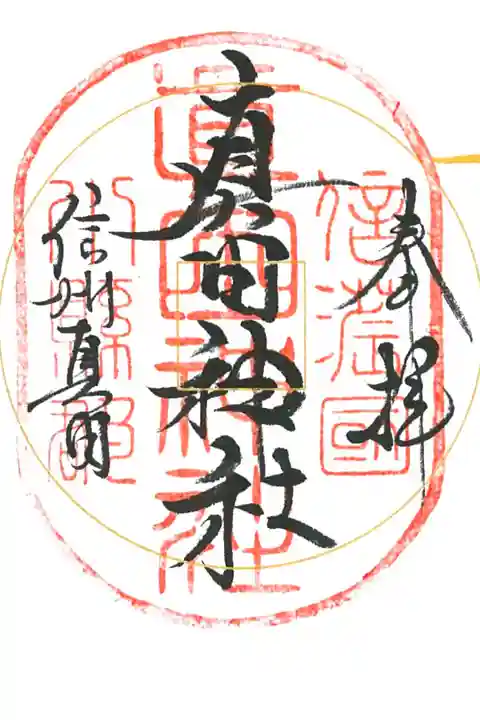 奉拝
信濃國
真田神社
真田神社
信州真田